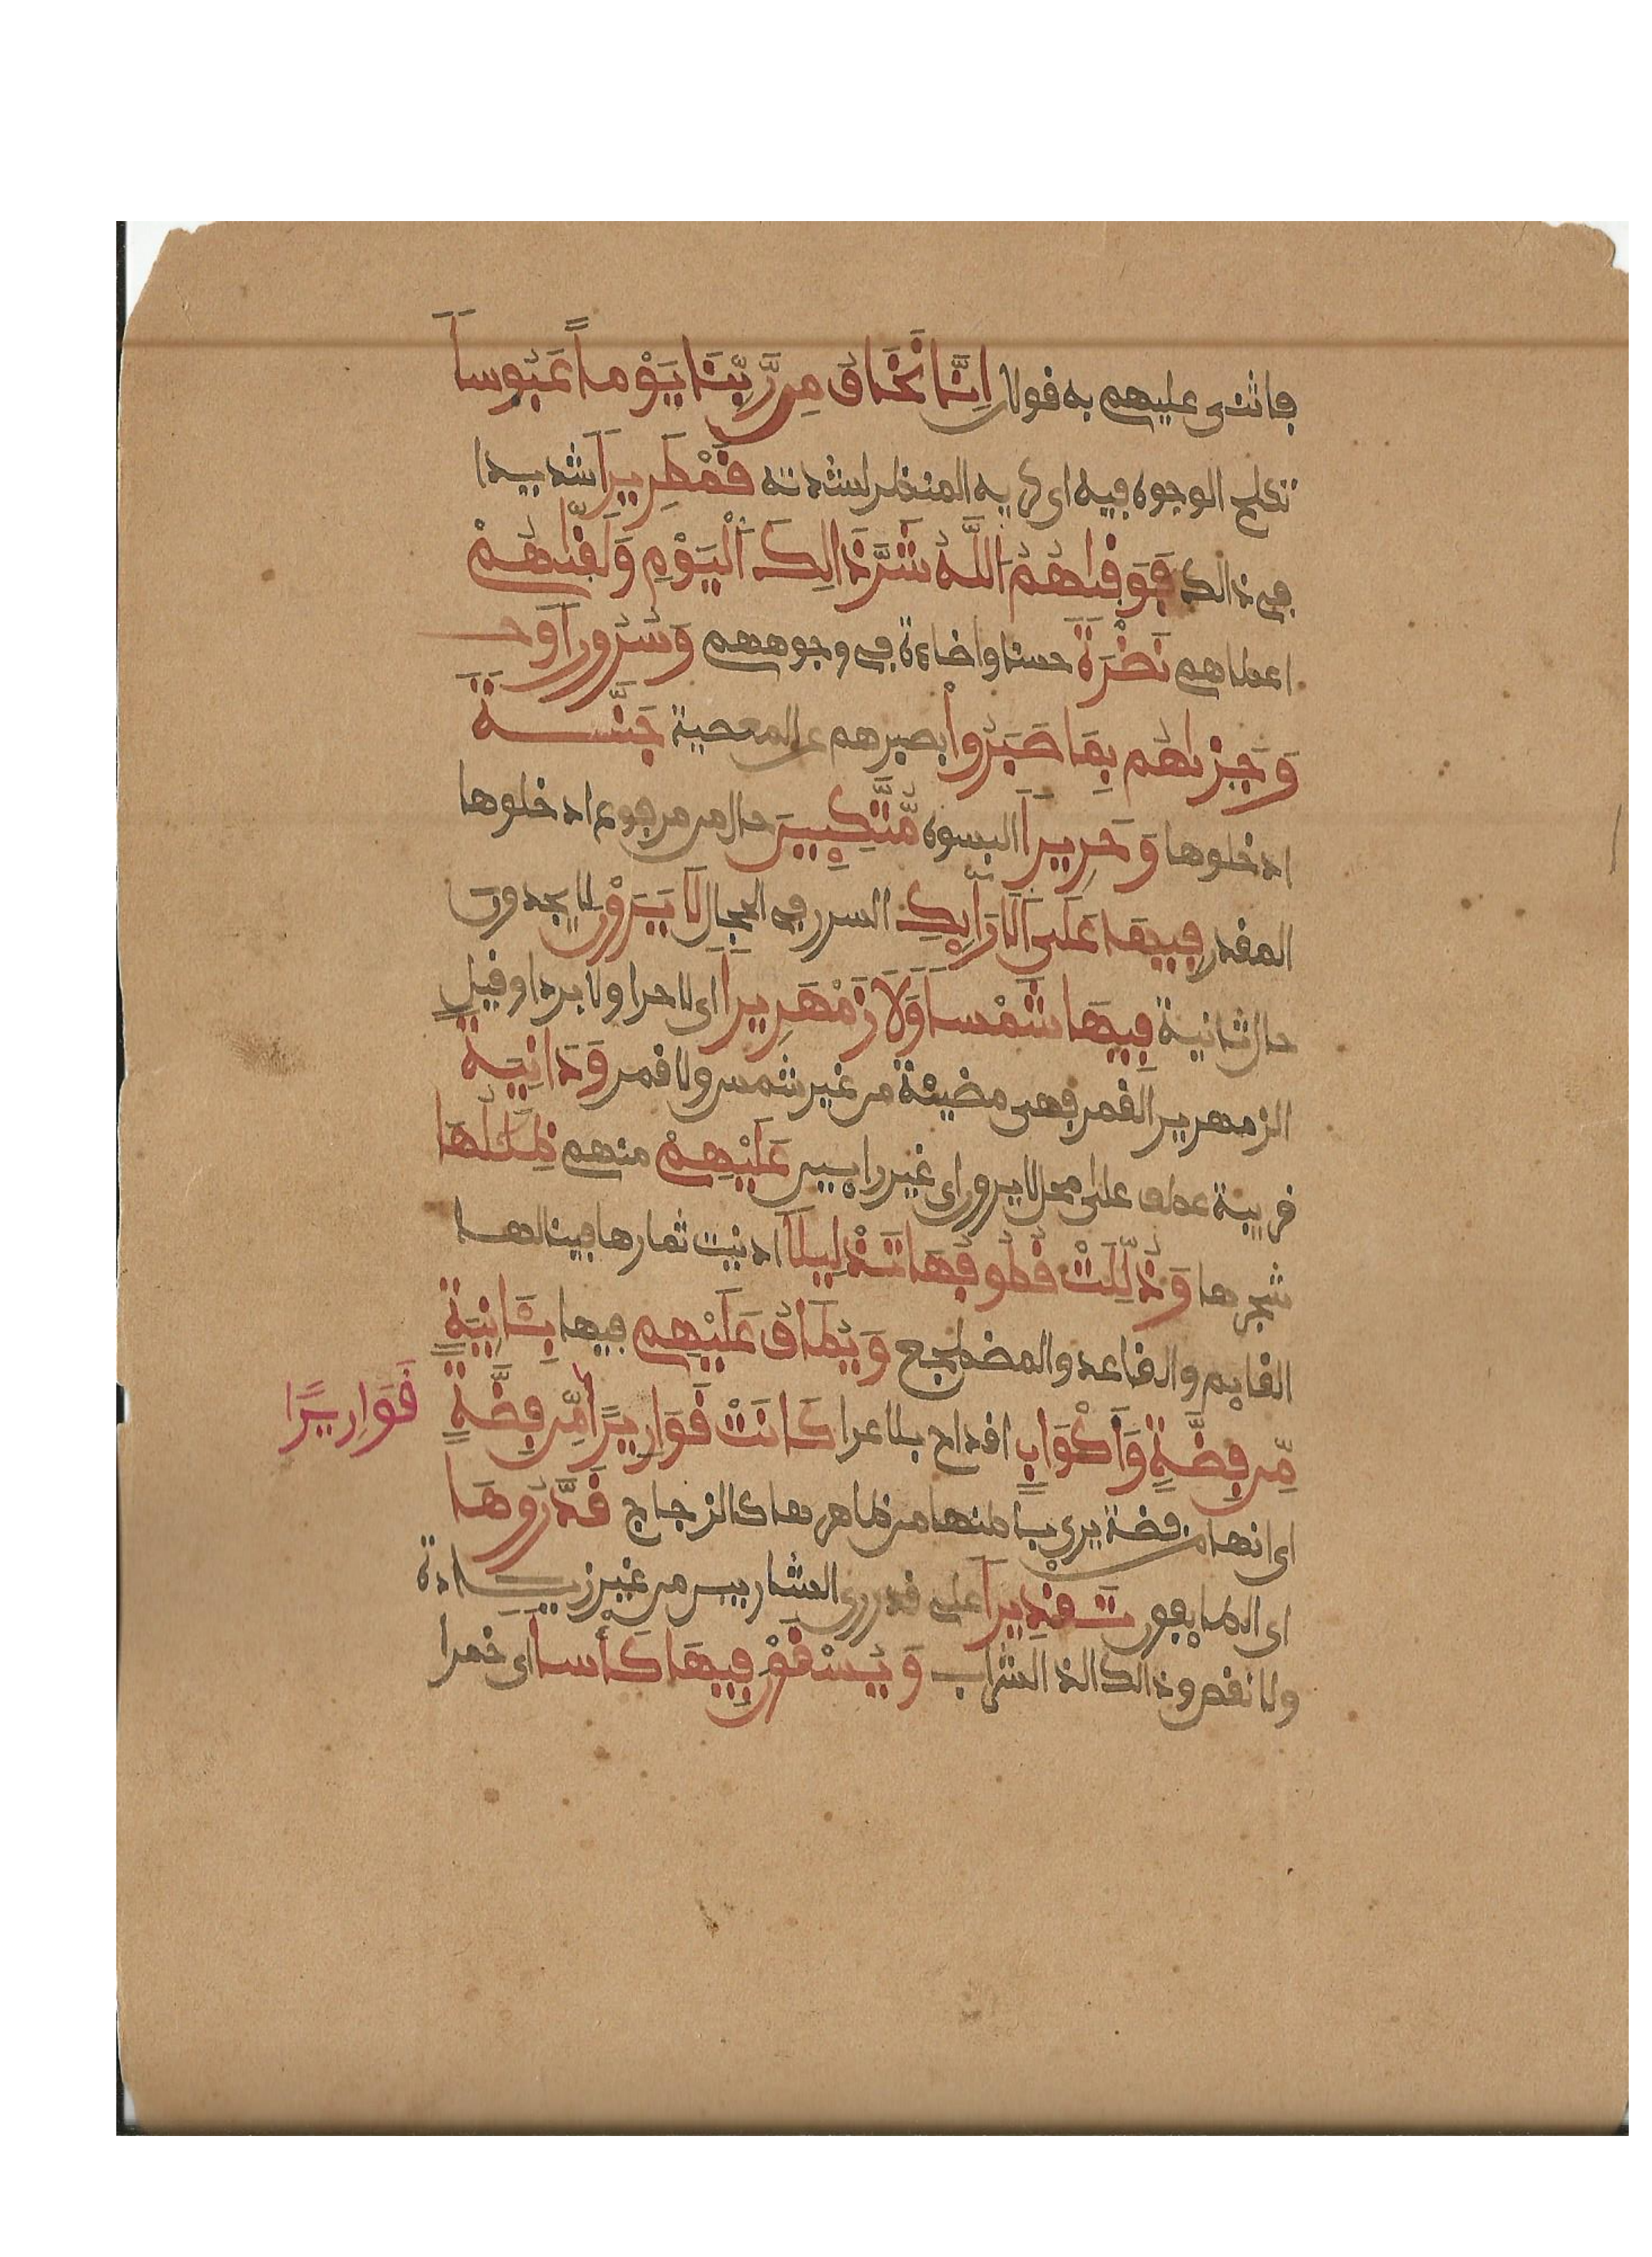 فاثنى عليهم به قولان اِنَّا نَخَافُ مِن رَّبِّنَا يَوْماً عَبُوساً
تكلح الوجوه فيه اى كريه المنظر لشدته قَمْطَرِيراً شديدا
في ذالك فَوَقِيٰهُمُ اَللَّهُ شَرَّ ذَالِكَ اَلْيَوْمِ وَلَقّيٰهُمْ
اعطاهم نَضْرَةً حسنا واضاءة في وجوههم وَسُرُوراً وَجـ
وَجَزيٰهُم بِمَا صَبَرُواْ بصبرهم عن المعصية جَنَّـــةً
ادخلوها وَحَرِيراً البسوه مُّتَّكِـِٔينَ حال من مرفوع ادخلوها
المقدر فِيهَا عَلَى اَلَارَآئِكِ السرر في الحجال لَا يَرَوْنَ لا يجدون
حال ثانية فِيهَا شَمْساً وَلَا زَمْهَرِيراً اى لا حرا ولا بردا وقيل
الزمهرير القمر فهي مضيئة من غير شمس ولا قمر وَدَانِيَةً
قريبة عطف على محل لا يرون اى غير رايين عَلَيْهِمْ منهم ظِلَٰلُهَا
شجرها وَذُلِّلَتْ قُطُوفُهَا تَذْلِيلاً ادنيت ثمارها فينالهـــا
القايم والقاعد والمضطجع وَيُطَافُ عَلَيْهِم فيها بِـَٔانِيَةٍ
مِّن فِضَّةٍ وَأَكْوَابٍ اقداح بلا عرا كَانَتْ قَوَارِيرًا مِّن فِضَّةٍ قَوَارِيرًا
اى انها من فضة يرى باطنها من ظاهرها كالزجاج قَدَّرُوهَا
اى الطايفون تَقْدِيراً على قدر رى الشاربين من غير زيـــادة
ولا نقص وذالك الذ الشراب وَيُسْقَوْنَ فِيهَا كَأْساً اى خمرا